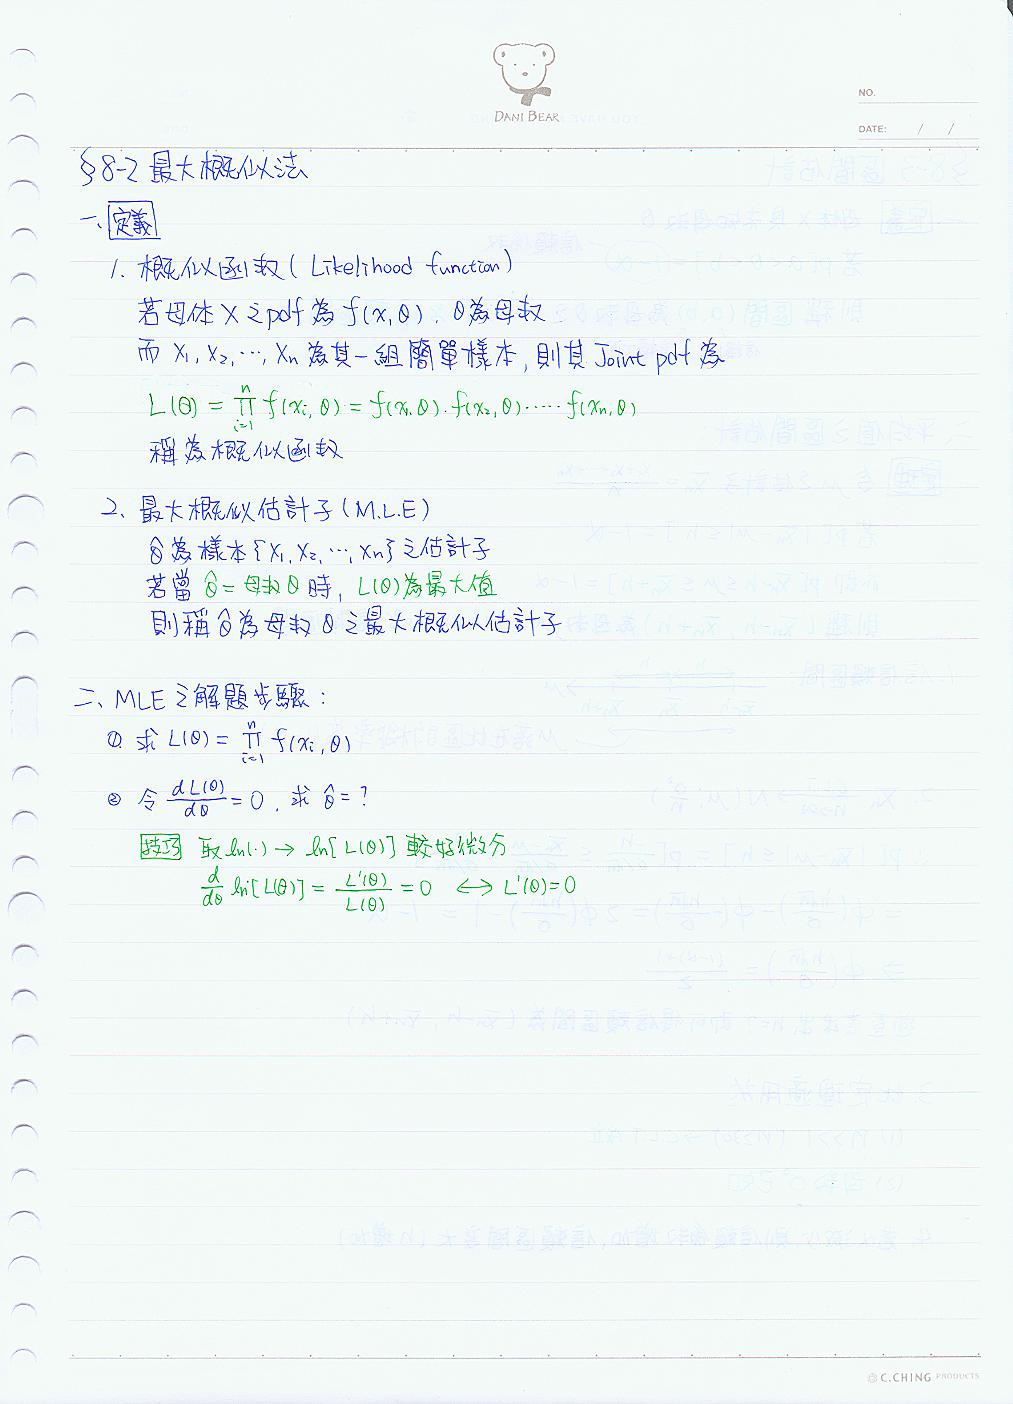 DANI BEAR
NO.
DATE: / /
§8-2 最大概似法
一、定義
1. 概似函数 (Likelihood function)
若母体 X 之pdf 為 f(x,θ), θ為母数
而 X₁, X₂, ⋯, Xn 為其一組簡單樣本, 則其 Joint pdf 為
L(θ) = ∏ᵢ₌₁ⁿ f(xᵢ,θ) = f(x₁,θ)·f(x₂,θ)·⋯·f(xn,θ)
稱為概似函数
2. 最大概似估計子 (M.L.E)
θ̂為樣本{X₁, X₂, ⋯, Xn}之估計子
若當 θ̂=母数θ 時, L(θ)為最大值
則稱θ̂為母数θ之最大概似估計子
二、MLE之解題步驟:
① 求 L(θ) = ∏ᵢ₌₁ⁿ f(xᵢ,θ)
② 令 dL(θ)/dθ = 0, 求 θ̂=?
技巧 取ln(·) → ln[L(θ)] 較好微分
d/dθ ln[L(θ)] = L'(θ)/L(θ) = 0 ⟷ L'(θ)=0
C.CHING PRODUCTS